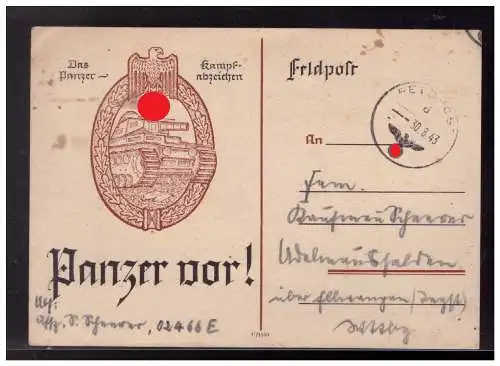 Das Panzer-
Kampf-
abzeichen
Panzer vor!
Uffz. S. Scheerer, 02466 E
Feldpost
FELDPOST
30.8.43
An
Fam.
Kaufmann Scheerer
Adelmannsfelden
über Ellwangen/Jagst
Wttbg